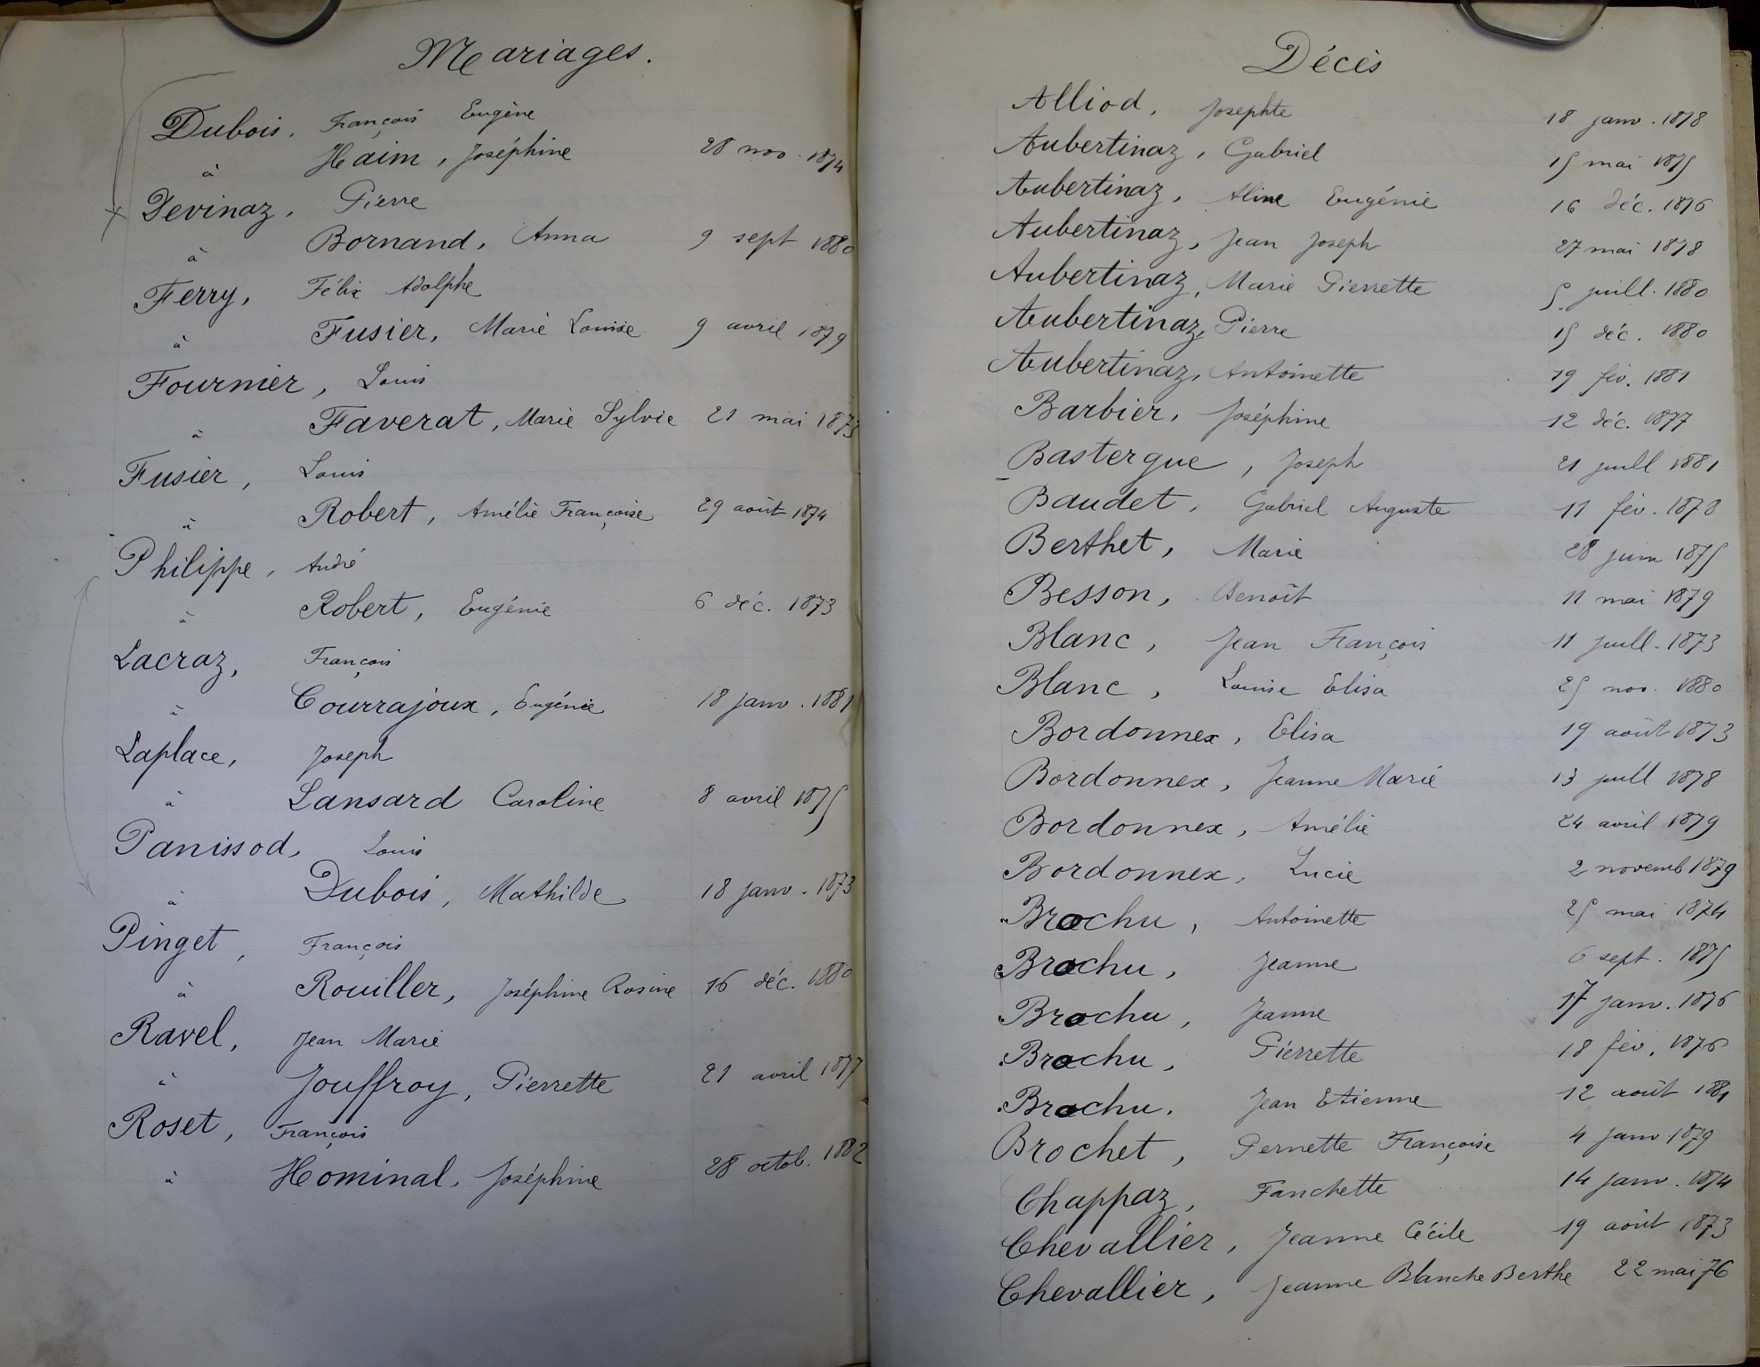 Mariages.
Dubois, François Eugène
à Haim, Joséphine 28 nov. 1874
Devinaz, Pierre
à Bornand, Anna 9 sept 1880
Ferry, Félix Adolphe
à Fusier, Marie Louise 9 avril 1879
Fournier, Louis
à Faverat, Marie Sylvie 21 mai 1873
Fusier, Louis
à Robert, Amélie Françoise 29 août 1874
Philippe, André
à Robert, Eugénie 6 déc. 1873
Lacraz, François
à Courrajoux, Eugénie 18 janv. 1881
Laplace, Joseph
à Lansard Caroline 8 avril 1875
Panissod, Louis
à Dubois, Mathilde 18 janv. 1873
Pinget, François
à Rouiller, Joséphine Rosine 16 déc. 1880
Ravel, Jean Marie
à Jouffroy, Pierrette 21 avril 1877
Roset, François
à Hominal, Joséphine 28 octob. 1882
Décès
Alliod, Josephte 18 janv. 1878
Aubertinaz, Gabriel 15 mai 1875
Aubertinaz, Aline Eugénie 16 déc. 1876
Aubertinaz, Jean Joseph 27 mai 1878
Aubertinaz, Marie Pierrette 5 juill. 1880
Aubertinaz, Pierre 15 déc. 1880
Aubertinaz, Antoinette 19 fév. 1881
Barbier, Joséphine 12 déc. 1877
Bastergue, Joseph 21 juill 1881
Baudet, Gabriel Auguste 11 fév. 1878
Berthet, Marie 28 juin 1875
Besson, Benoît 11 mai 1879
Blanc, Jean François 11 juill. 1873
Blanc, Louise Elisa 25 nov. 1880
Bordonnex, Elisa 19 août 1873
Bordonnex, Jeanne Marie 13 juill 1878
Bordonnex, Amélie 24 avril 1879
Bordonnex, Lucie 2 novemb 1879
Brochu, Antoinette 25 mai 1874
Brochu, Jeanne 6 sept. 1875
Brochu, Jeanne 17 janv. 1876
Brochu, Pierrette 18 fév. 1876
Brochu, Jean Etienne 12 août 1881
Brochet, Pernette Françoise 4 janv 1879
Chappaz, Fanchette 14 janv. 1874
Chevallier, Jeanne Cécile 19 août 1873
Chevallier, Jeanne Blanche Berthe 22 mai 76